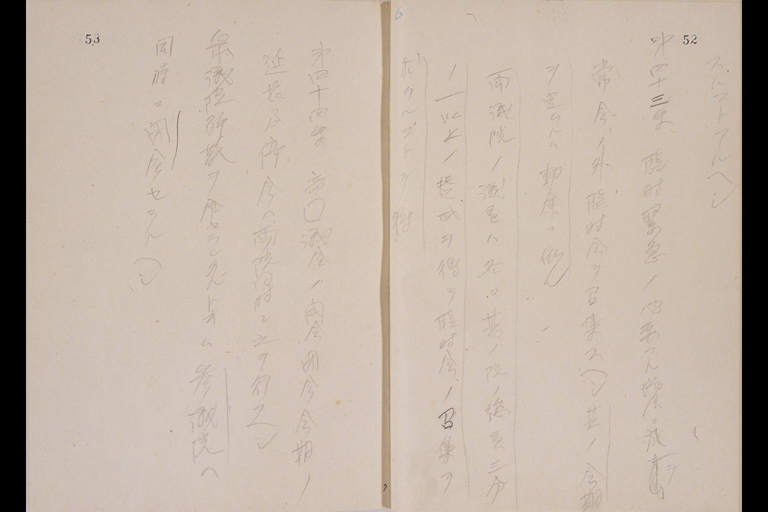 52
スルコトアルヘシ
第四十三条 臨時緊急ノ 必要アル
常会ノ外臨時会ヲ召集スヘシ其ノ会期
ヲ定ムルハ勅命ニ依ル
両議院ノ議員ハ各々其ノ院ノ総員三分
ノ一以上ノ賛成ヲ得テ臨時会ノ召集ヲ
53
第四十四条 帝国議会ノ開会閉会会期ノ
延長及停会ハ両院同時ニ之ヲ行フヘシ
衆議院解散ヲ命セラレタルトキハ参議院ハ
同時ニ閉会セラルヘシ